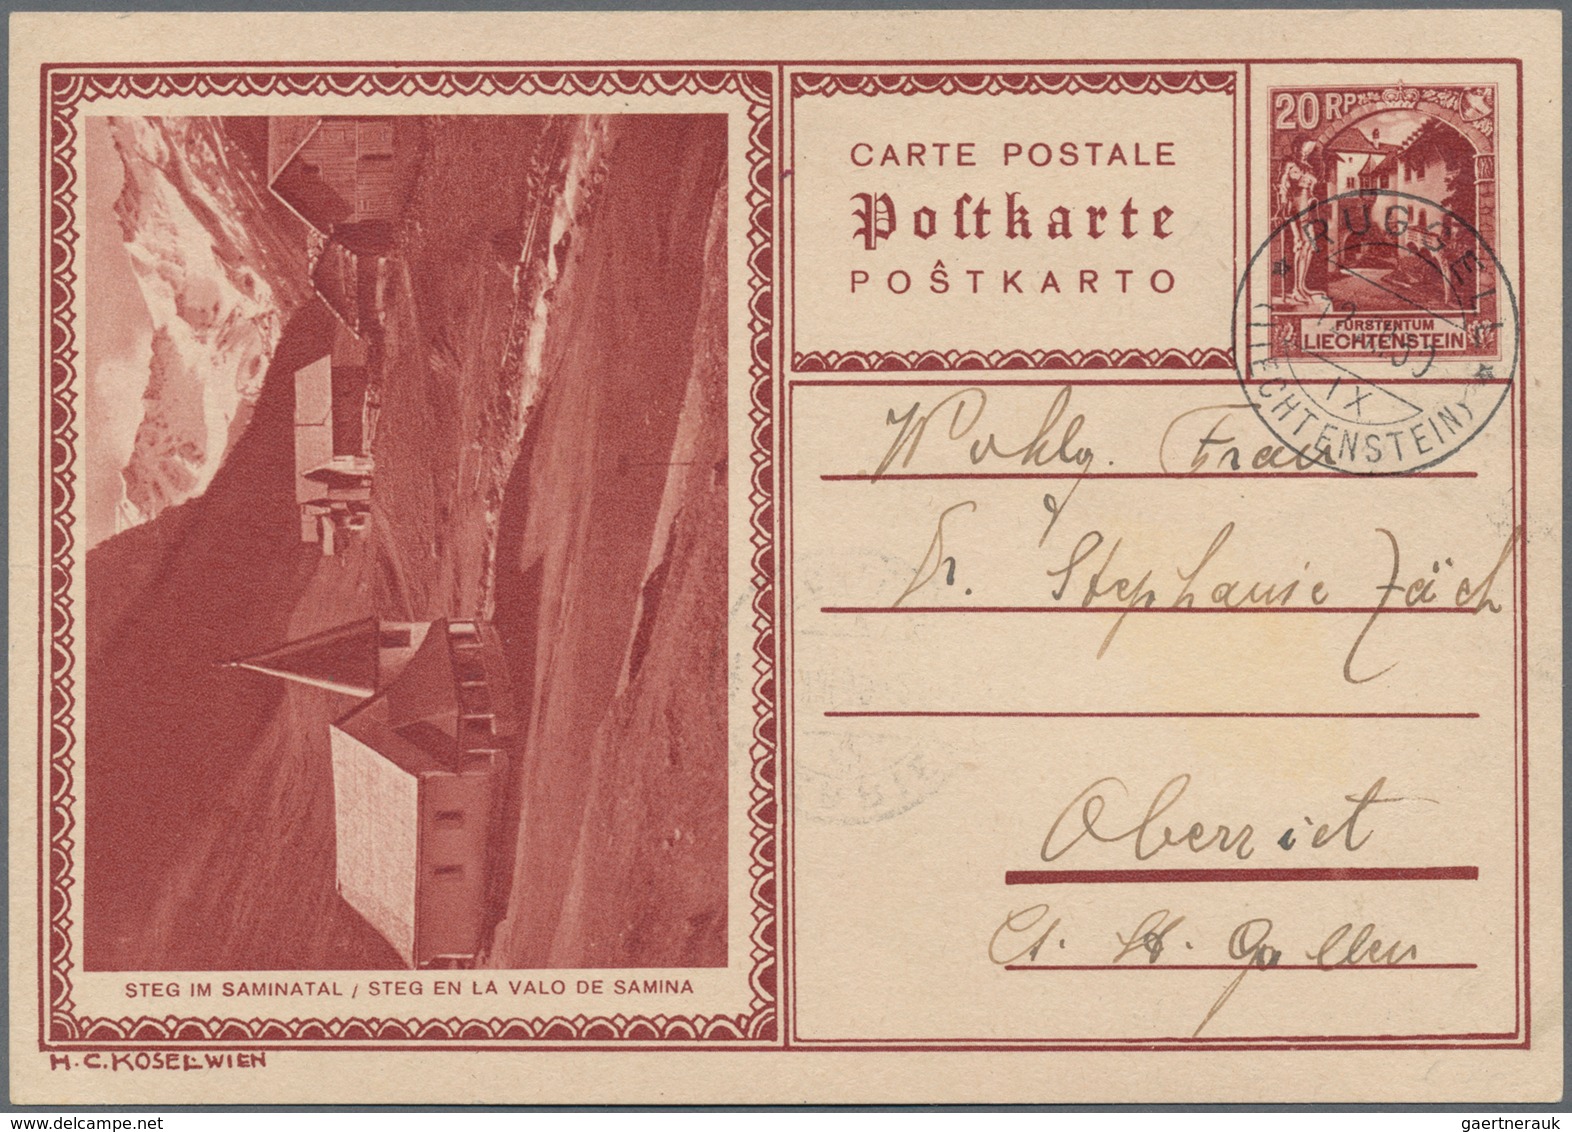 20 RP
FÜRSTENTUM
LIECHTENSTEIN
CARTE POSTALE
Postkarte
POŜTKARTO
* RUGGELL *
IX
(LIECHTENSTEIN)
Wohlg. Frau
Dr. Stephanie Zäch
Oberriet
Ct. St. Gallen
STEG IM SAMINATAL / STEG EN LA VALO DE SAMINA
H.C.KOSEL-WIEN
www.delcampe.net
gaertnerauk